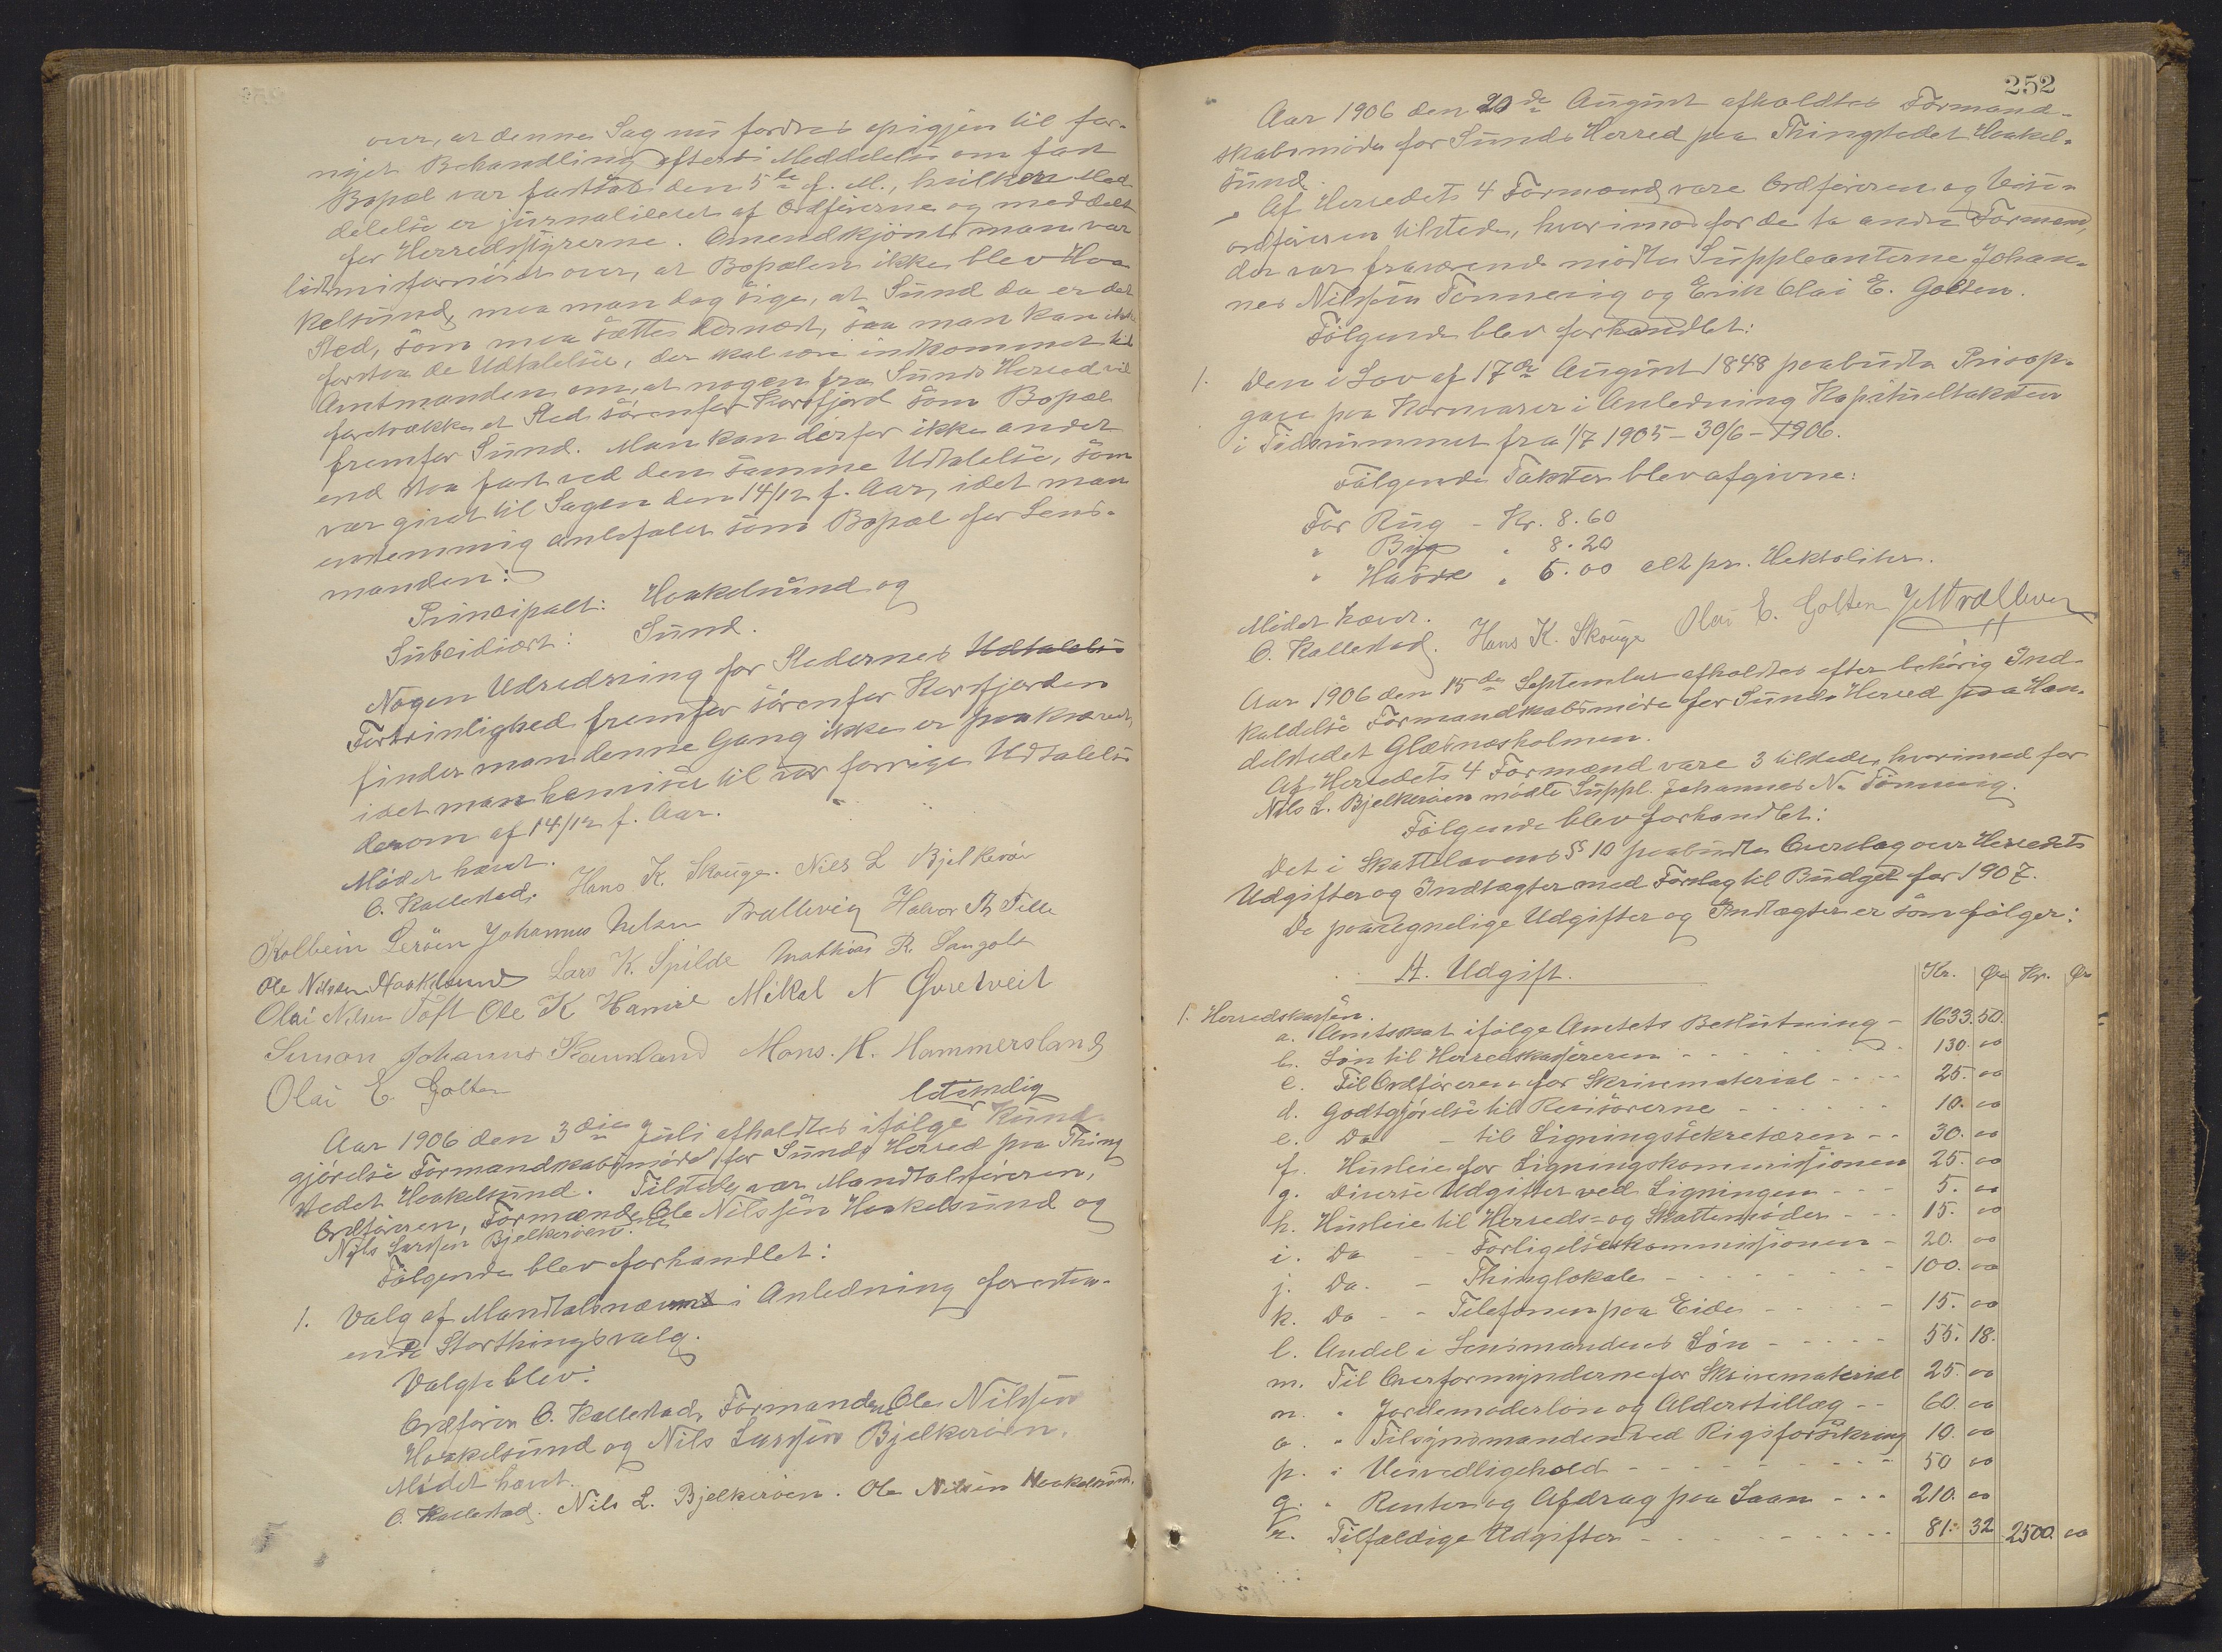 over, at denne Sag nu fordres opigjen til for-
nyet Behandling efterat Meddelelse om fast
Bopæl var fastsat den 5te f. M., hvilken Med-
delelse er journaliseret af Ordføreren og meddelt
for Herredsstyrerne. Omendskjønt man var
lidt misfornøiet over, at Bopælen ikke blev Hoa-
kelsund, maa man dog sige, at Sund da er det
Sted, som maa sættes dernæst, saa man kan ikke
forstaa de Udtalelser, der skal være indkommet til
Amtmanden om, at nogen fra Sunds Herred vil
foretrække et Sted sørenfor Korsfjord som Bopæl
fremfor Sund. Man kan derfor ikke andet
end staa fast ved den samme Udtalelse, som
var givet til Sagen den 14/12 f. Aar, idet man
enstemmig anbefaler som Bopæl for Lens-
manden:
Principalt: Hoakelsund og
Subsidiært: Sund.
Nogen Udredning for Stedernes Udtalelse
Fortrinlighed fremfor sørenfor Korsfjorden
finder man denne Gang ikke er paakrævet,
idet man henviser til vor forrige Udtalelse
derom af 14/12 f. Aar.
Mødet hævet.
O. Kallestad. Hans K. Skouge. Niels L Bjelkerøi
Kolbein Lerøen Johannes Nelsen Trællevig Halvor Th Telle
Ole Nilssen Hoakelsund Lars K. Spilde Mathias R. Sangolt
Olai Nilsen Toft Ole K Hamre Mikal N Gjertveit
Simon Johannes Kaurland Mons. H. Hammersland
Olai E. Golten
lovmelig
Aar 1906 den 3die Juli afholdtes ifølge Kund-
gjørelse Formandskabsmøde for Sunds Herred paa Thing-
stedet Hoakelsund. Tilstede var Mandtalsføreren,
Ordføreren, Formændene Ole Nilssen Hoakelsund og
Nils Larssen Bjelkerøen.
Følgende blev forhandlet:
1. Valg af Mandtalsnævnd i Anledning foresta-
ende Storthingsvalg.
Valgte blev:
Ordfører O. Kallestad, Formændene Ole Nilssen
Hoakelsund og Nils Larssen Bjelkerøen.
Mødet hævet.
O. Kallestad. Nils L. Bjelkerøen. Ole Nilsen Hoakelsund.
252
Aar 1906 den 20de August afholdtes Formand-
skabsmøde for Sunds Herred paa Thingstedet Hoakel-
sund.
Af Herredets 4 Formænd vare Ordføreren og Vise-
ordføreren tilstede, hvorimod for de to andre Formænd,
der var fraværende mødte Suppleanterne Johan-
nes Nilssen Tønnevig og Erik Olai E. Golten.
Følgende blev forhandlet:
1. Den i Lov af 17de August 1848 paabudte Prisop-
gave paa Kornvarer i Anledning Kapitelstaksten
i Tidsrummet fra 1/7 1905 - 30/6 - 1906.
Følgende Takster blev afgivne:
For Rug - Kr. 8.60
" Byg " 8.20
" Havre " 5.00 alt pr. Hektoliter.
Mødet hævet.
O. Kallestad. Hans K. Skouge Olai E. Golten J N Trællevig
Aar 1906 den 15de September afholdtes efter behørig Ind-
kaldelse Formandskabsmøde for Sunds Herred paa Han-
delstedet Glæsnæsholmen.
Af Herredets 4 Formænd vare 3 tilstede, hvorimod for
Nils L. Bjelkerøen mødte Suppl. Johannes N. Tønnevig.
Følgende blev forhandlet:
Det i Skattelovens § 10 paabudte Overslag over Herredets
Udgifter og Indtægter med Forslag til Budget for 1907.
De paaregnelige Udgifter og Indtægter er som følger:
A. Udgift. Kr. Øre Kr. Øre
1. Herredskassen.
a. Amtsskat ifølge Amtets Beslutning - 1633.50.
b. Løn til Herredskassereren - - - 130. 00
c. Til Ordføreren for Skrivematerial - - - 25. 00
d. Godtgjørelse til Revisorerne - - - 10. 00
e. Do - til Ligningssekretæren - - 30. 00
f. Husleie for Ligningskommissionen 25. 00
g. Diverse Udgifter ved Ligningen - - - 5. 00
h. Husleie til Herreds- og Skattemøder - - - 15. 00
i. Do - - Forligelseskommissionen - 20. 00
j. Do. - Thinglokale - - - 100. 00
k. Do - - Telefonen paa Eide - - - 15. 00
l. Andel i Lensmandens Løn - - - 55. 18.
m. Til Overformynderne for Skrivematerial 25. 00
n. " Jordemoderløn og Alderstillæg - - 60. 00
o. " Tilsynsmanden ved Rigsforsikring 10. 00
p. " Veivedligehold - - - 50 00
q. " Renter og Afdrag paa Laan - - - 210. 00
r. Tilfældige Udgifter - - - 81. 32 2500. 00